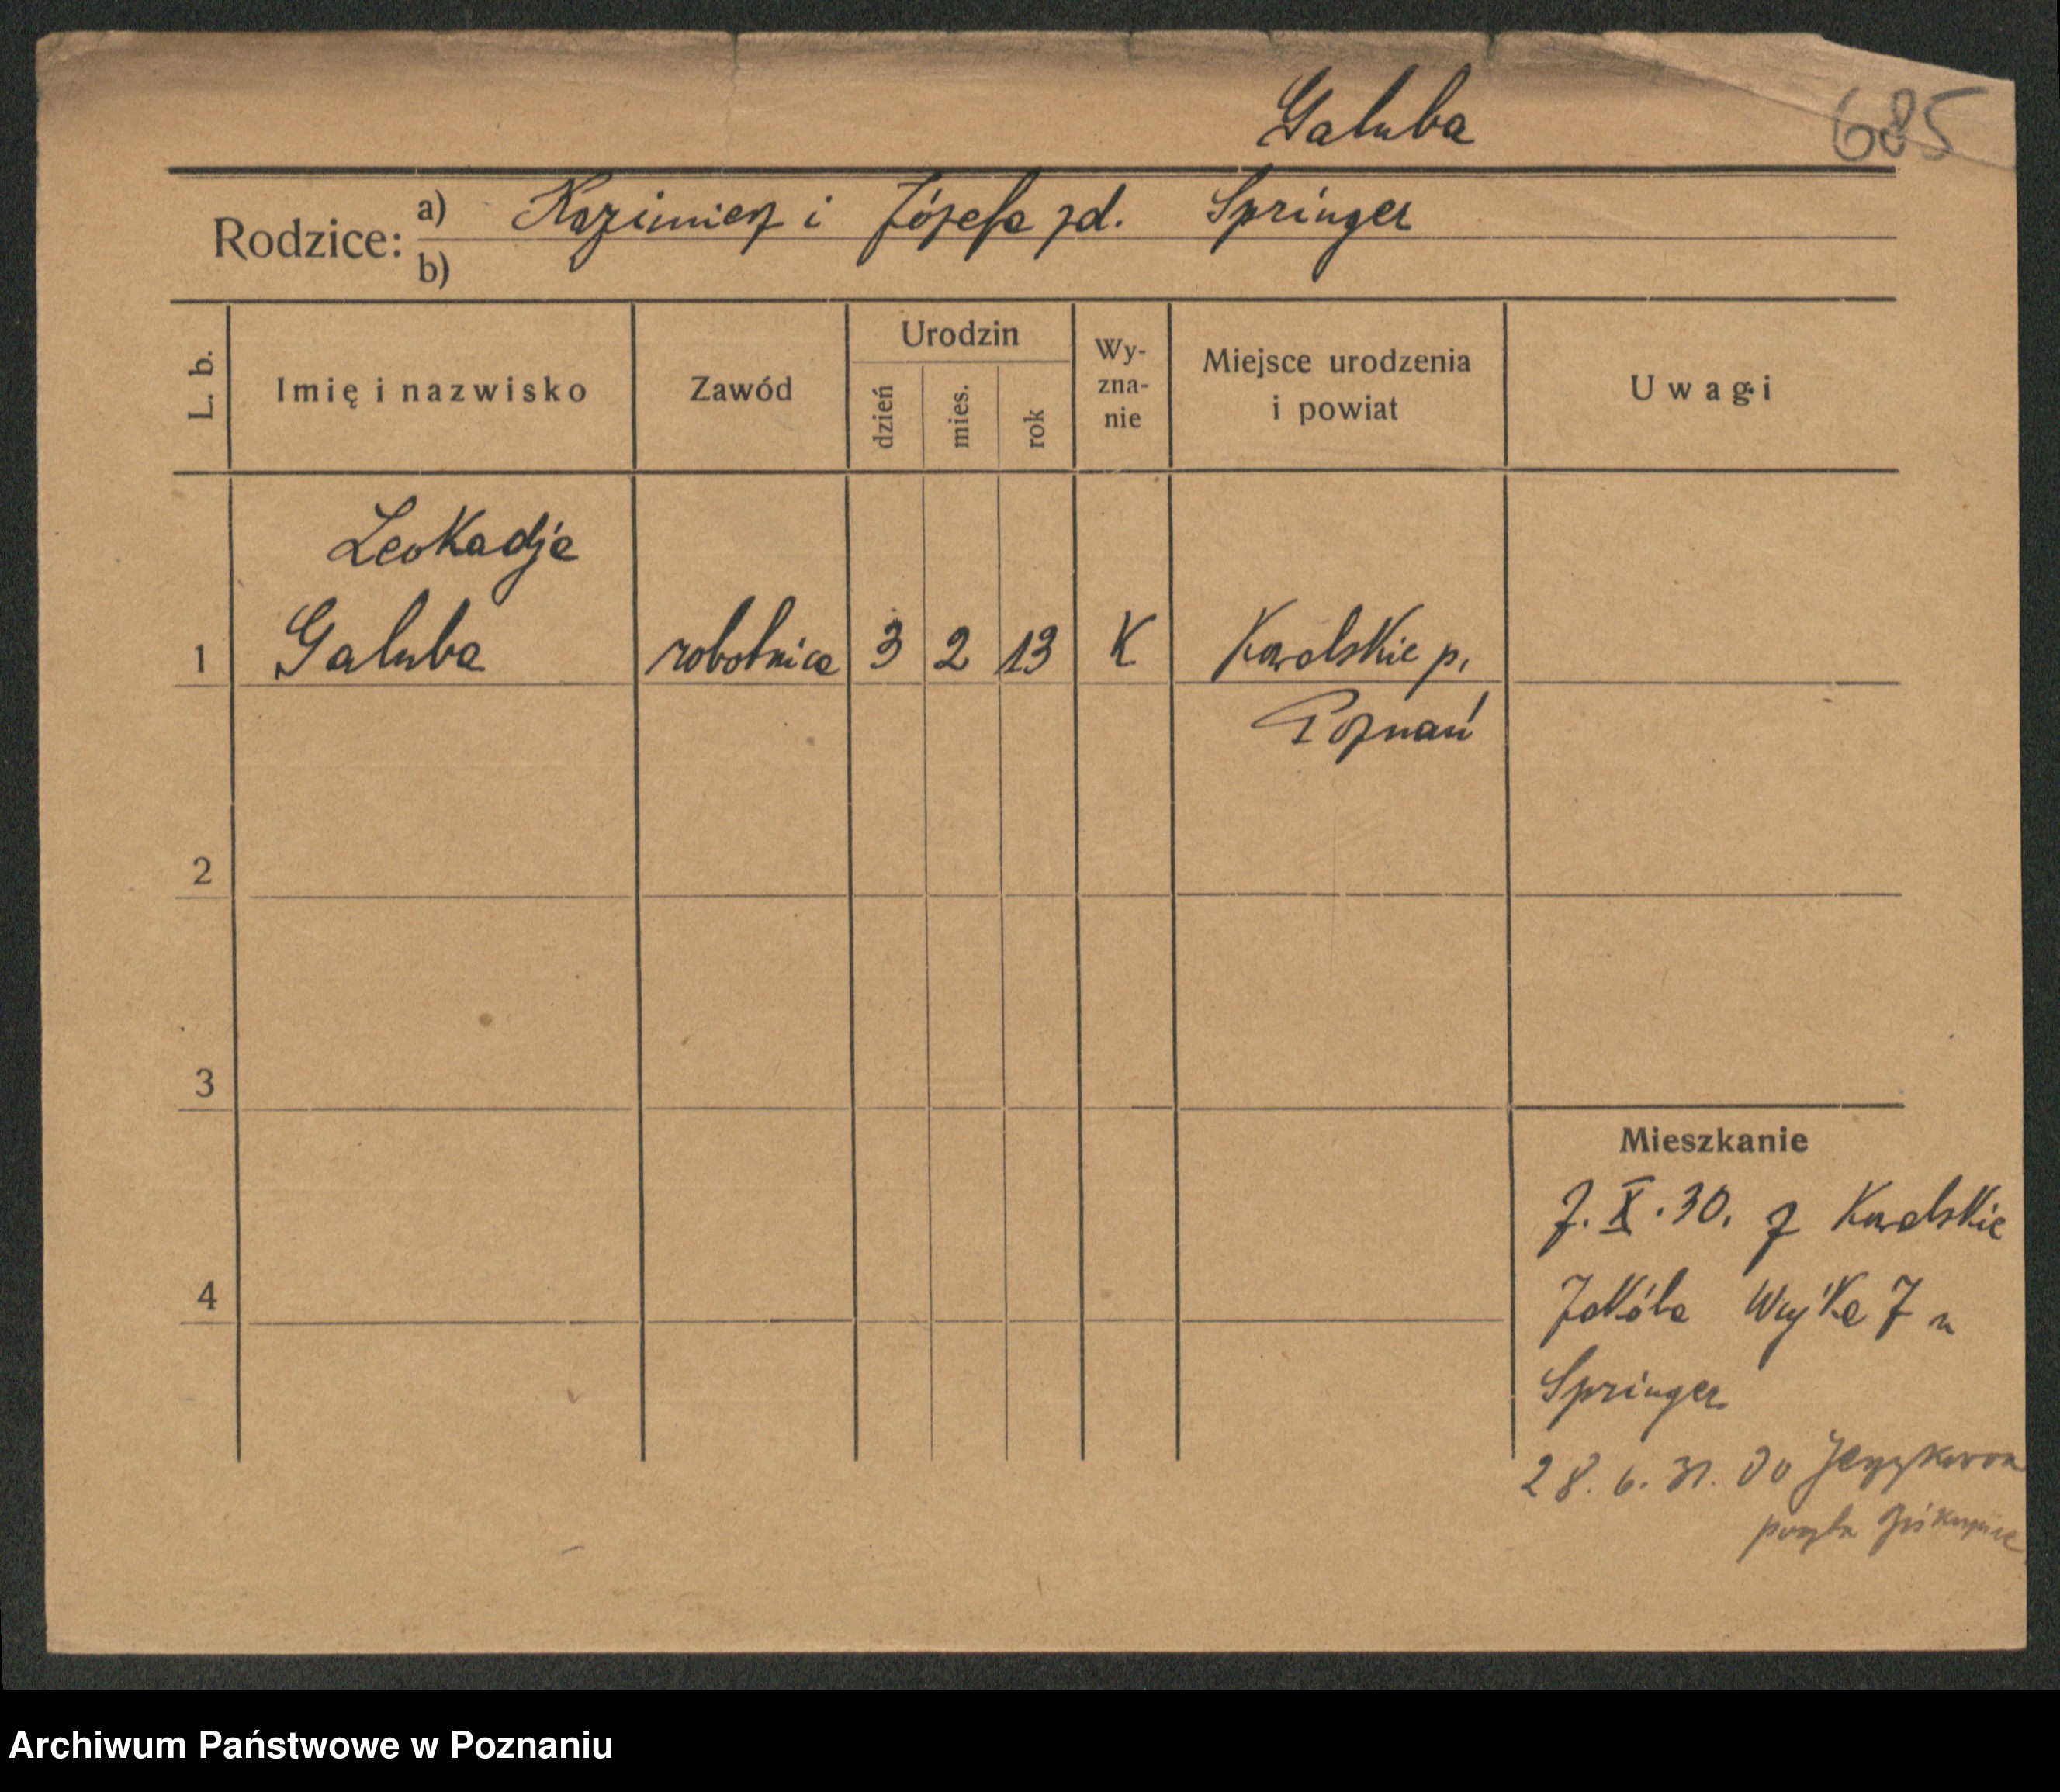 Galuba
685
Rodzice: a) Kazimierz i Józefa zd. Springer
b)
L. b.
Imię i nazwisko
Zawód
Urodzin
dzień
mies.
rok
Wy-
zna-
nie
Miejsce urodzenia
i powiat
Uwagi
Leokadja
1 Galuba robotnica 3 2 13 K Kowalskie p.
Poznań
2
3
4
Mieszkanie
7. X. 30. z Kowalskie
Jakóba Wujka 7 u
Springer
28. 6. 31. do
poczta
Archiwum Państwowe w Poznaniu